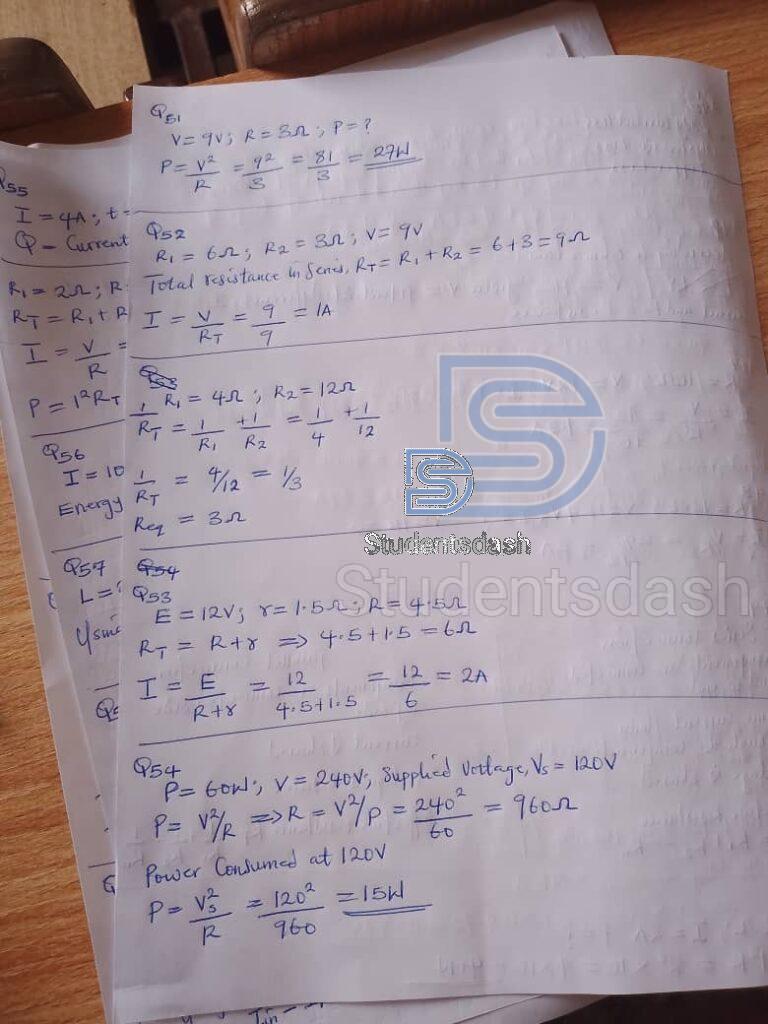 Q51
V = 9V; R = 3Ω; P = ?
P = V²/R = 9²/3 = 81/3 = 27W
Q52
R₁ = 6Ω; R₂ = 3Ω; V = 9V
Total resistance in series, R_T = R₁ + R₂ = 6 + 3 = 9Ω
I = V/R_T = 9/9 = 1A
R₁ = 4Ω; R₂ = 12Ω
1/R_T = 1/R₁ + 1/R₂ = 1/4 + 1/12
1/R_T = 4/12 = 1/3
Req = 3Ω
Q54
Q53
E = 12V; r = 1.5Ω; R = 4.5Ω
R_T = R + r ⇒ 4.5 + 1.5 = 6Ω
I = E/R+r = 12/4.5+1.5 = 12/6 = 2A
Q54
P = 60W; V = 240V; Supplied Voltage, Vs = 120V
P = V²/R ⇒ R = V²/P = 240²/60 = 960Ω
Power Consumed at 120V
P = Vs²/R = 120²/960 = 15W
Q55
I = 4A; t =
Q = Current
R₁ = 2Ω; R
R_T = R₁ + R
I = V/R =
P = I²R_T
Q56
I = 10
Energy
Q57
L = ?
Studentsdash
Studentsdash